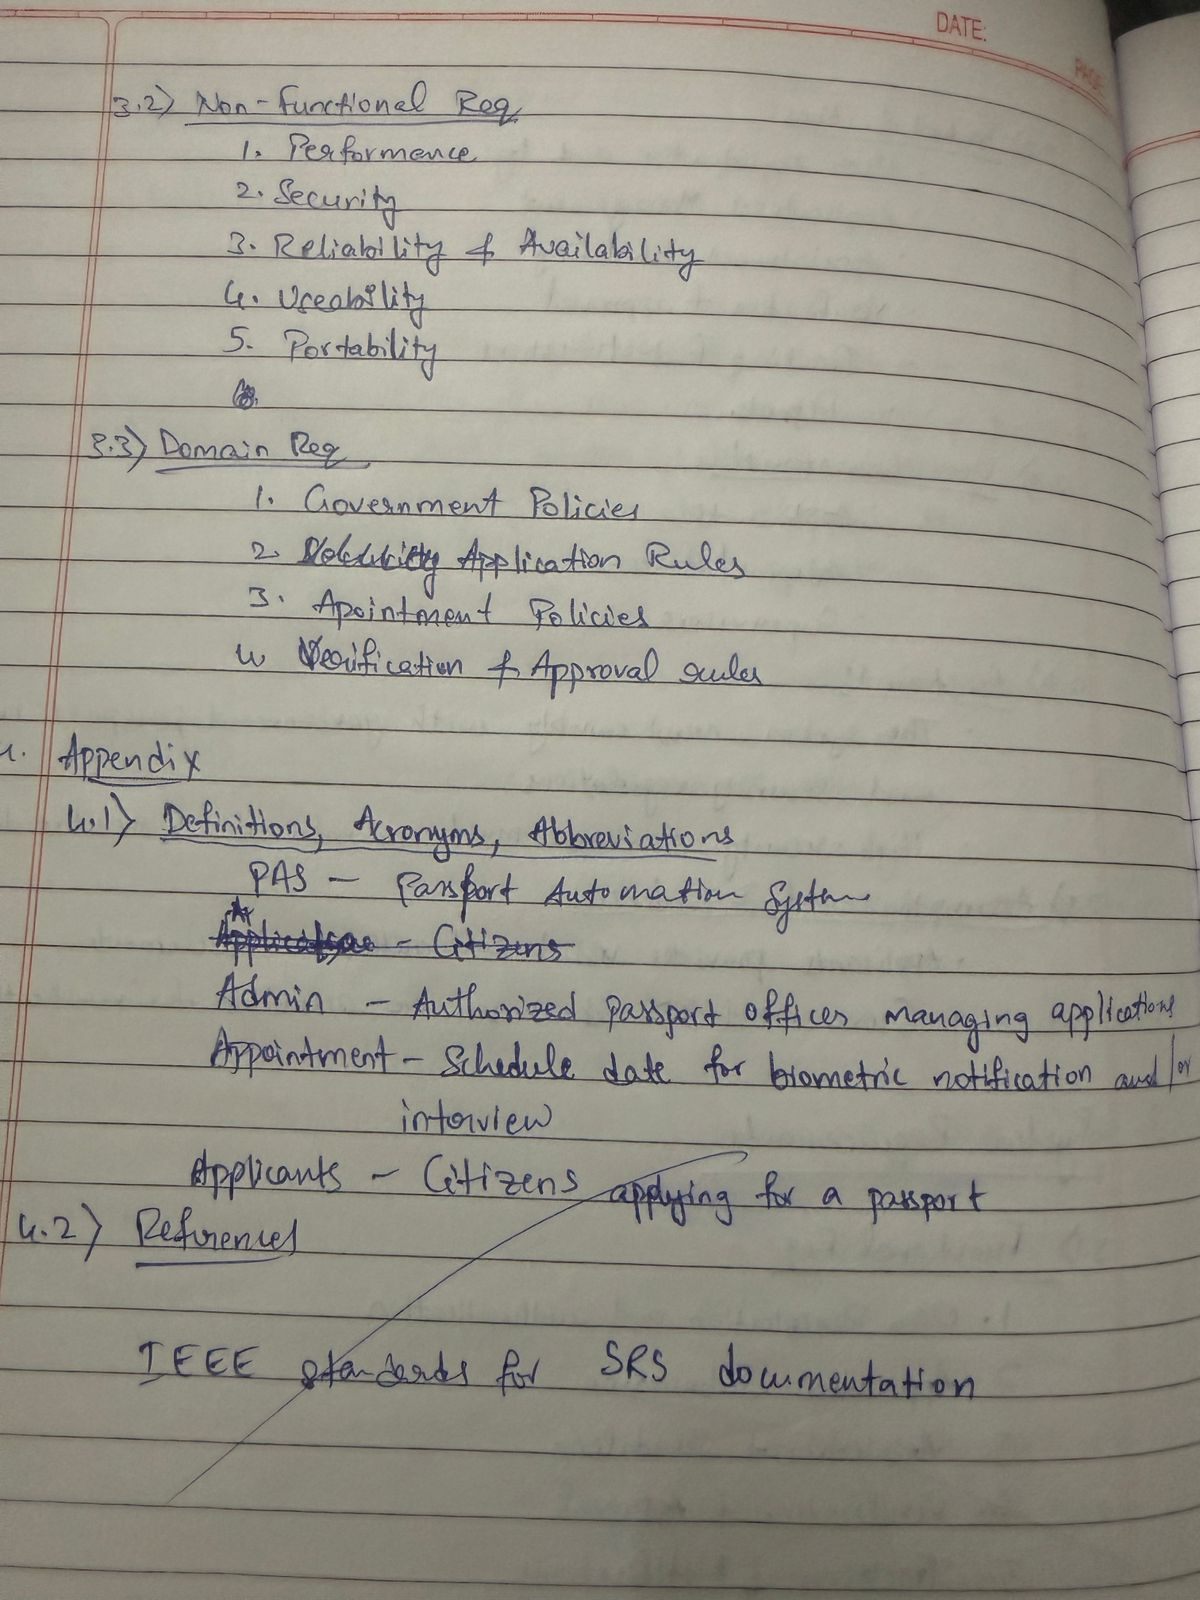 DATE:
PAGE:
3.2) Non-Functional Req
1. Performence
2. Security
3. Reliability & Availability
4. Useability
5. Portability
3.3) Domain Req
1. Government Policies
2. Application Rules
3. Apointment Policies
4. Verification & Approval rules
4. Appendix
4.1) Definitions, Acronyms, Abbreviations
PAS - Passport Automation System
- Citizens
Admin - Authorized passport offices managing applications
Appointment - Schedule date for biometric notification and/or
interview
Applicants - Citizens applying for a passport
4.2) References
IEEE standards for SRS documentation